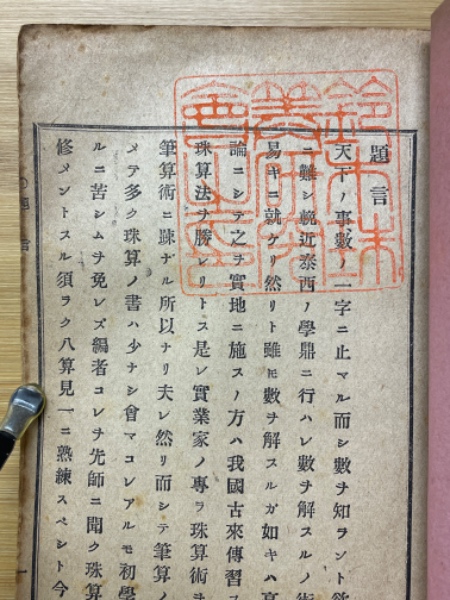 題言
天下ノ事數ノ一字ニ止マル而シ數ヲ知ラント欲
ニ難シ輓近泰西ノ學鼎ニ行ハレ數ヲ解スルノ術
易キニ就ケリ然リト雖𪜈數ヲ解スルガ如キハ
論ニシテ之ヲ實地ニ施スノ方ハ我國古來傳習ス
珠算法ヲ勝レリトス是レ實業家ノ專ラ珠算術ヲ
筆算術ニ疎ナル所以ナリ夫レ然リ而シテ筆算ノ
メテ多ク珠算ノ書ハ少ナシ會マコレアルモ初學
ルニ苦シムヲ免レズ編者コレヲ先師ニ聞ク珠算
修メントスル須ラク八算見一ニ熟練スベシト今
題言
一